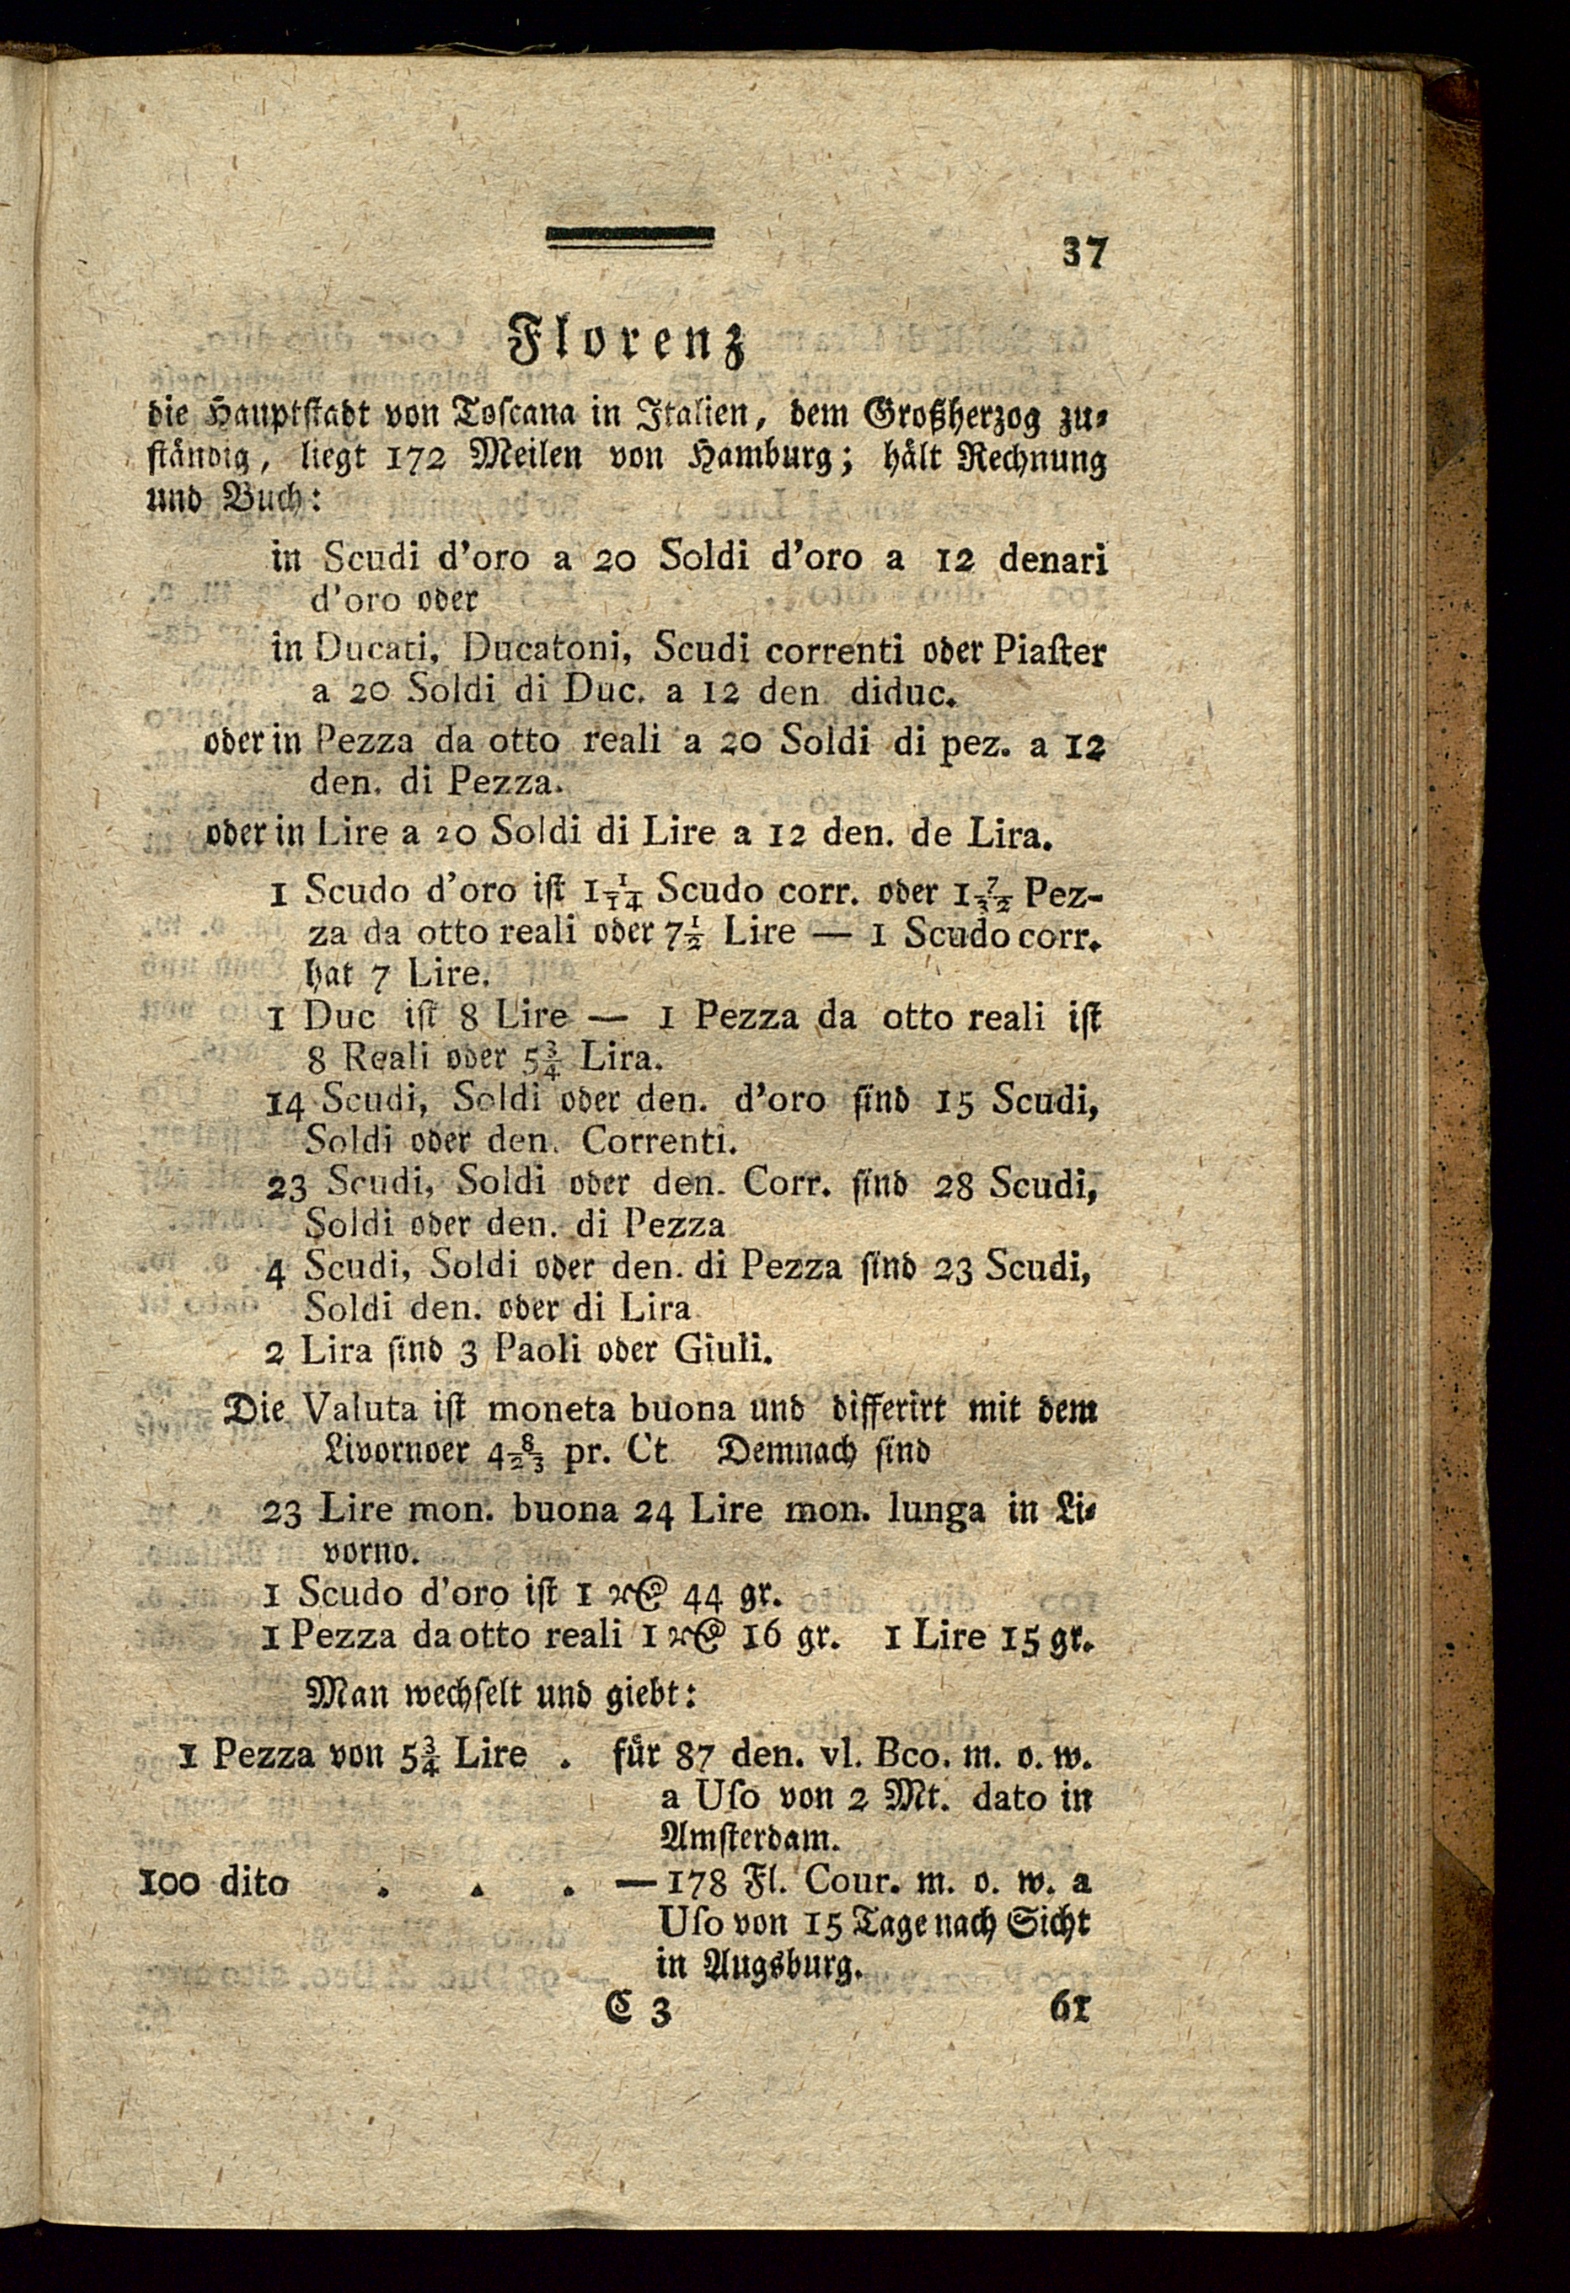 37
Florenz
die Hauptſtadt von Toſcana in Italien, dem Großherzog zu⸗
ſtändig, liegt 172 Meilen von Hamburg; hält Rechnung
und Buch:
in Scudi d'oro a 20 Soldi d'oro a 12 denari
d'oro oder
in Ducati, Ducatoni, Scudi correnti oder Piaſter
a 20 Soldi di Duc. a 12 den diduc.
oder in Pezza da otto reali a 20 Soldi di pez. a 12
den. di Pezza.
oder in Lire a 20 Soldi di Lire a 12 den. de Lira.
1 Scudo d'oro iſt 1 1/14 Scudo corr. oder 1 7/32 Pez-
za da otto reali oder 7½ Lire — 1 Scudo corr.
hat 7 Lire.
1 Duc iſt 8 Lire — 1 Pezza da otto reali iſt
8 Reali oder 5¾ Lira.
14 Scudi, Soldi oder den. d'oro ſind 15 Scudi,
Soldi oder den. Correnti.
23 Scudi, Soldi oder den. Corr. ſind 28 Scudi,
Soldi oder den. di Pezza
4 Scudi, Soldi oder den. di Pezza ſind 23 Scudi,
Soldi den. oder di Lira
2 Lira ſind 3 Paoli oder Giuli.
Die Valuta iſt moneta buona und differirt mit dem
Livornoer 4 8/23 pr. Ct Demnach ſind
23 Lire mon. buona 24 Lire mon. lunga in Li⸗
vorno.
1 Scudo d'oro iſt 1 44 gr.
1 Pezza da otto reali 1 16 gr. 1 Lire 15 gr.
Man wechſelt und giebt:
1 Pezza von 5¾ Lire . für 87 den. vl. Bco. m. o. w.
a Uſo von 2 Mt. dato in
Amſterdam.
100 dito . . . — 178 Fl. Cour. m. o. w. a
Uſo von 15 Tage nach Sicht
in Augsburg.
C 3 61